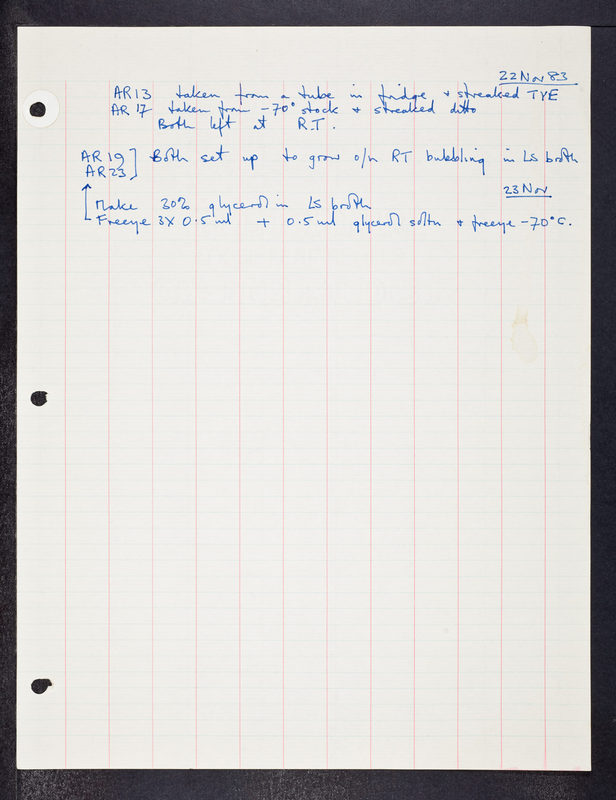 22 Nov 83
AR 13 taken from a tube in fridge + streaked TYE
AR 17 taken from -70° stock + streaked ditto
Both left at R.T.
AR 19 ] Both set up to grow o/n RT bubbling in Ls broth
AR 23
23 Nov
Make 30% glycerol in Ls broth
Freeze 3X 0.5 ml + 0.5 ml glycerol soltn + freeze -70°C.